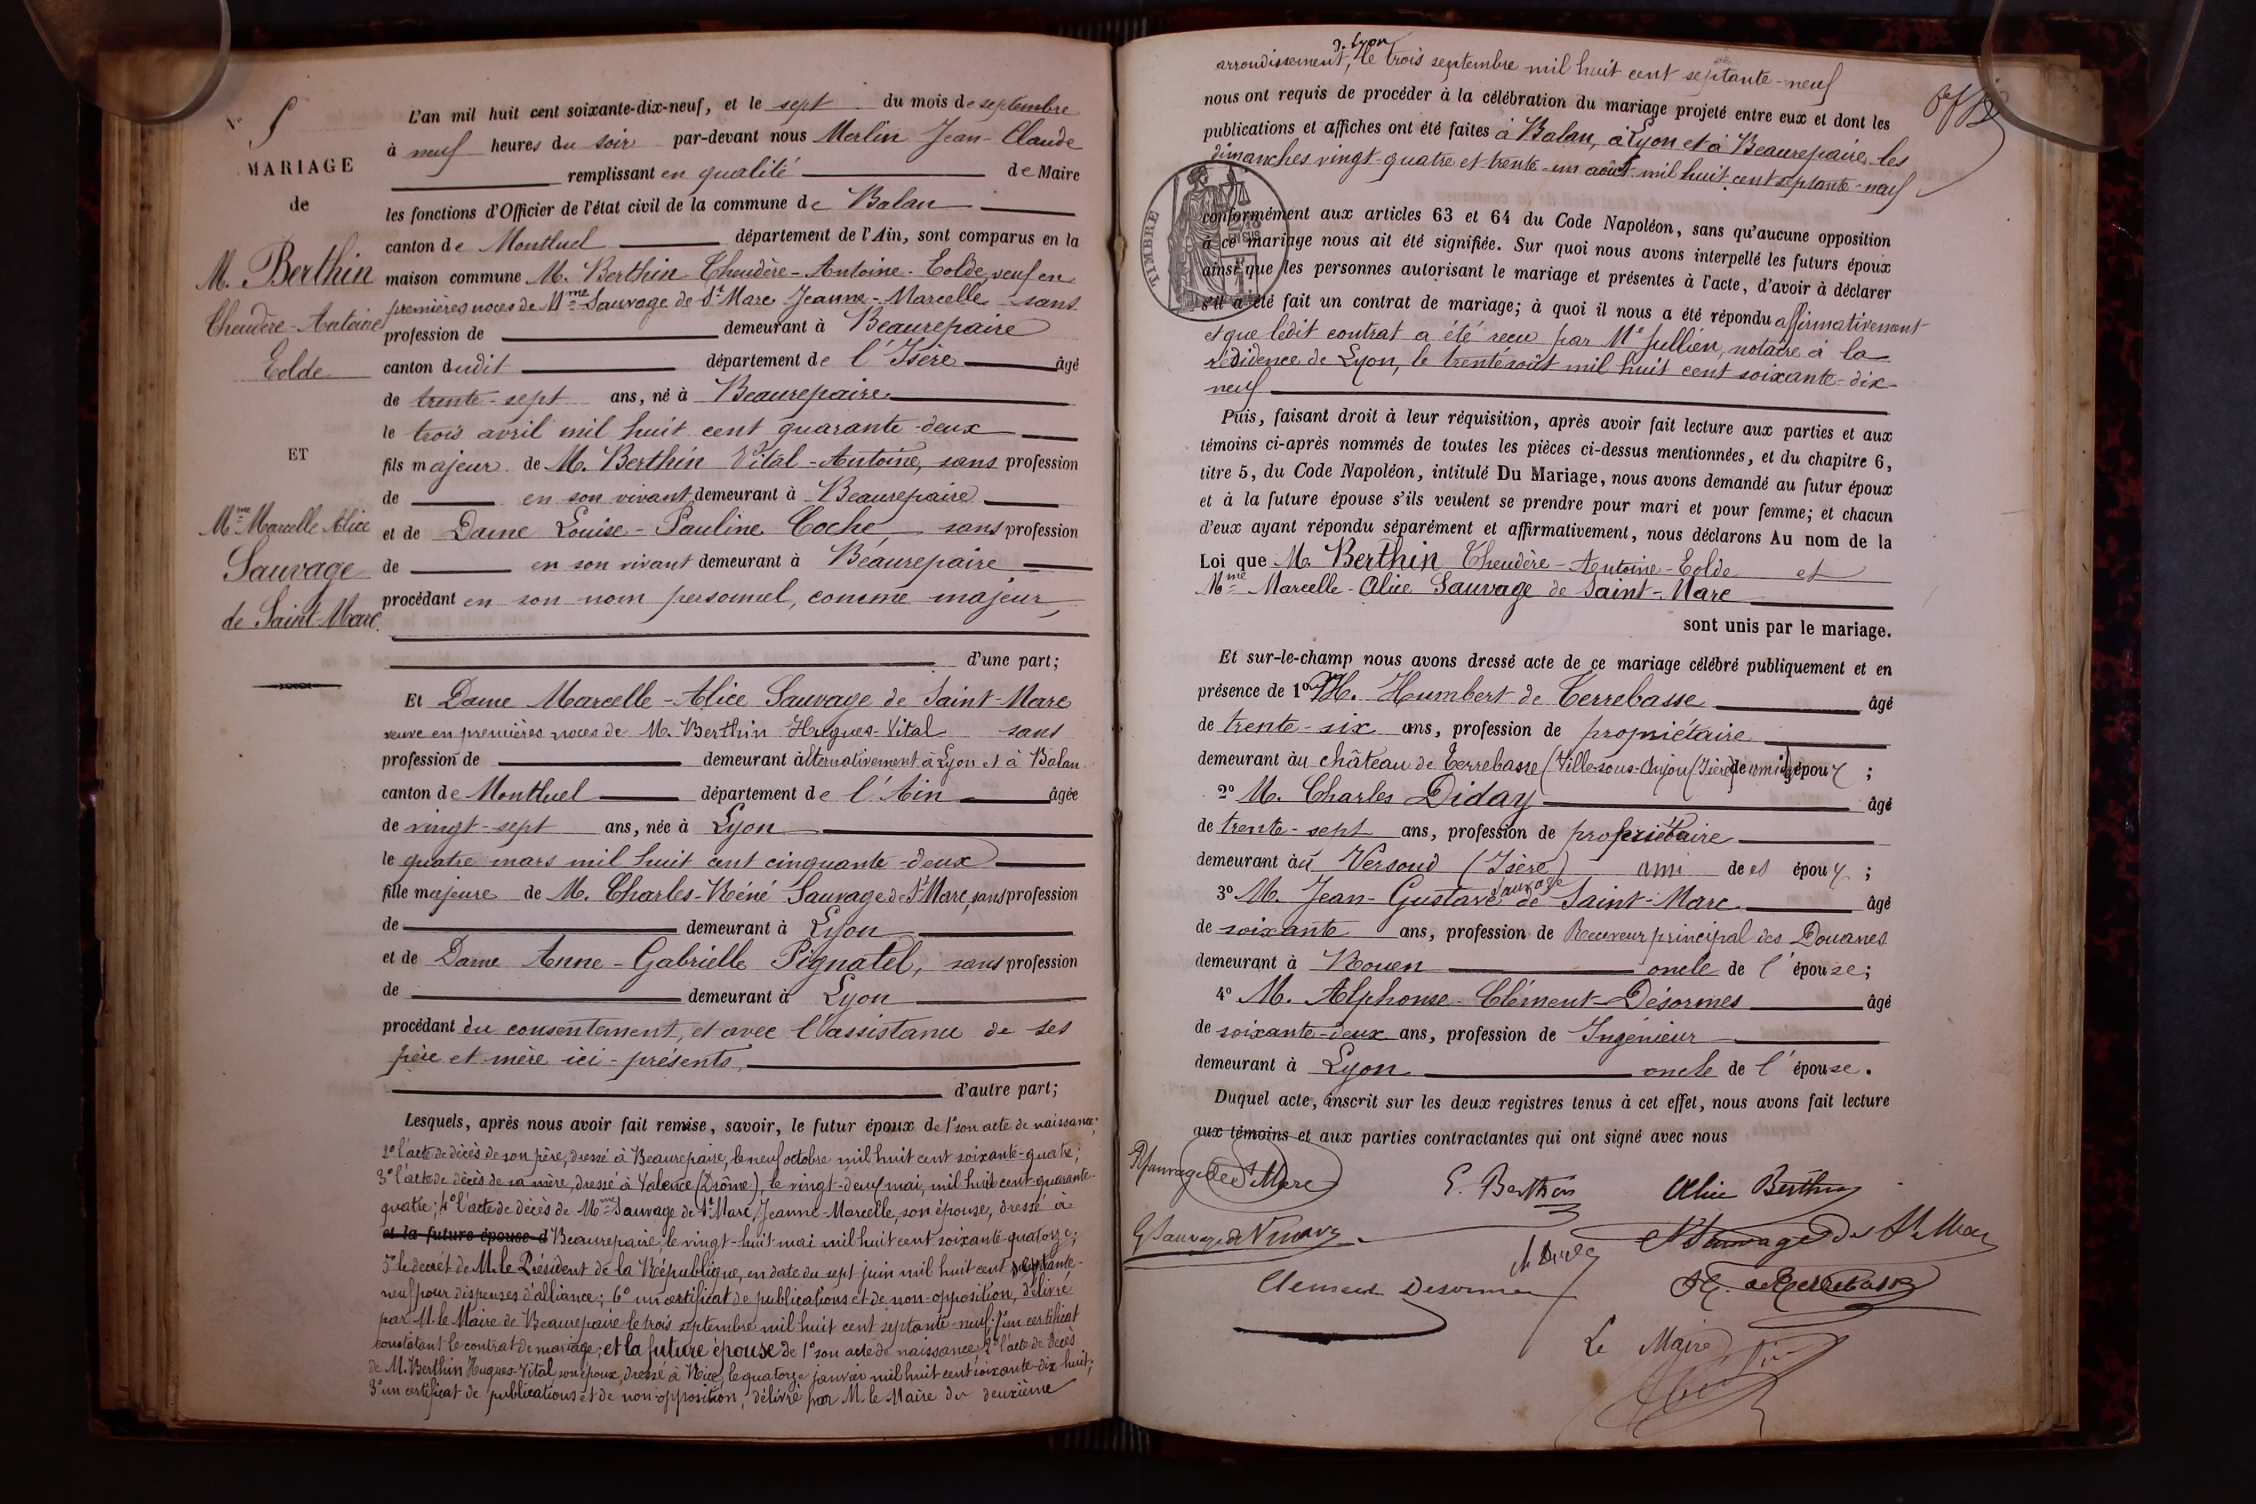 N° 5
MARIAGE
de
M. Berthin
Cheudère-Antoine
Eolde
ET
Mme Marcelle Alice
Sauvage
de Saint-Marc.
L'an mil huit cent soixante-dix-neuf, et le sept du mois de septembre
à neuf heures du soir par-devant nous Merlin Jean-Claude
remplissant en qualité de Maire
les fonctions d'Officier de l'état civil de la commune de Balan
canton de Montluel département de l'Ain, sont comparus en la
maison commune M. Berthin Cheudère-Antoine-Eolde, veuf en
premières noces de Mme Sauvage de St Marc Jeanne-Marcelle sans
profession de demeurant à Beaurepaire
canton dudit département de l'Isère âgé
de trente-sept ans, né à Beaurepaire
le trois avril mil huit cent quarante-deux
fils majeur de M. Berthin Vital-Antoine, sans profession
de en son vivant demeurant à Beaurepaire
et de Dame Louise-Pauline Coche, sans profession
de en son vivant demeurant à Beaurepaire
procédant en son nom personnel, comme majeur,
d'une part;
Et Dame Marcelle-Alice Sauvage de Saint-Marc
veuve en premières noces de M. Berthin Hugues-Vital sans
profession de demeurant alternativement à Lyon et à Balan
canton de Montluel département de l'Ain âgée
de vingt-sept ans, née à Lyon
le quatre mars mil huit cent cinquante-deux
fille majeure de M. Charles-Réné Sauvage de St Marc, sans profession
de demeurant à Lyon
et de Dame Anne-Gabrielle Pignatel, sans profession
de demeurant à Lyon
procédant du consentement, et avec l'assistance de ses
père et mère ici-présents,
d'autre part;
Lesquels, après nous avoir fait remise, savoir, le futur époux de 1° son acte de naissance;
2° l'acte de décès de son père, dressé à Beaurepaire, le neuf octobre mil huit cent soixante-quatre;
3° l'acte de décès de sa mère, dressé à Valence (Drôme), le vingt-deux mai, mil huit cent quarante-
quatre; 4° l'acte de décès de Mme Sauvage de St Marc Jeanne-Marcelle, son épouse, dressé à
et la future épouse d Beaurepaire, le vingt-huit mai mil huit cent soixante-quatorze;
5° le décrèt de M. le Président de la République, en date du sept juin mil huit cent septante-
neuf pour dispenses d'alliance; 6° un certificat de publications et de non-opposition, délivré
par M. le Maire de Beaurepaire le trois septembre mil huit cent septante-neuf; 7° un certificat
constatant le contrat de mariage; et la future épouse de 1° son acte de naissance; 2° l'acte de décès
de M. Berthin Hugues-Vital son époux, dressé à Nice, le quatorze janvier mil huit cent soixante-dix huit;
3° un certificat de publications et de non-opposition, délivré par M. le Maire du deuxième
arrondissement, de Lyon le trois septembre mil huit cent septante-neuf
nous ont requis de procéder à la célébration du mariage projeté entre eux et dont les
publications et affiches ont été faites à Balan, à Lyon et à Beaurepaire, les
dimanches vingt-quatre et trente-un août mil huit cent septante-neuf
TIMBRE
conformément aux articles 63 et 64 du Code Napoléon, sans qu'aucune opposition
à ce mariage nous ait été signifiée. Sur quoi nous avons interpellé les futurs époux
ainsi que les personnes autorisant le mariage et présentes à l'acte, d'avoir à déclarer
s'il a été fait un contrat de mariage; à quoi il nous a été répondu affirmativement
et que ledit contrat a été reçu par Me Jullien, notaire à la
résidence de Lyon, le trente août mil huit cent soixante-dix-
neuf
Puis, faisant droit à leur réquisition, après avoir fait lecture aux parties et aux
témoins ci-après nommés de toutes les pièces ci-dessus mentionnées, et du chapitre 6,
titre 5, du Code Napoléon, intitulé Du Mariage, nous avons demandé au futur époux
et à la future épouse s'ils veulent se prendre pour mari et pour femme; et chacun
d'eux ayant répondu séparément et affirmativement, nous déclarons Au nom de la
Loi que M. Berthin Cheudère-Antoine-Eolde et
Mme Marcelle-Alice Sauvage de Saint-Marc
sont unis par le mariage.
Et sur-le-champ nous avons dressé acte de ce mariage célébré publiquement et en
présence de 1° M. Humbert de Terrebasse âgé
de trente-six ans, profession de propriétaire
demeurant au château de Terrebasse (Ville-sous-Anjou (Isère) ami de l'époux;
2° M. Charles Diday âgé
de trente-sept ans, profession de propriétaire
demeurant au Versoud (Isère) ami des époux;
3° M. Jean-Gustave Sauvage de Saint-Marc âgé
de soixante ans, profession de Receveur principal des Douanes
demeurant à Rouen oncle de l'épouse;
4° M. Alphonse Clément-Désormes âgé
de soixante-deux ans, profession de Ingénieur
demeurant à Lyon oncle de l'épouse.
Duquel acte, inscrit sur les deux registres tenus à cet effet, nous avons fait lecture
aux témoins et aux parties contractantes qui ont signé avec nous
Sauvage de St Marc
E. Berthin Alice Berthin
G Sauvage de St Marc
Sauvage de St Marc
Clement Desormes
H. de Terrebasse
Le Maire